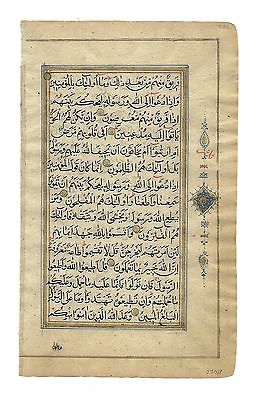 فريق منهم من بعد ذلك وما أولئك بالمؤمنين
وإذا دعوا إلى الله ورسوله ليحكم بينهم
إذا فريق منهم معرضون وإن يكن لهم الحق
يأتوا إليه مذعنين أفي قلوبهم مرض
أم ارتابوا أم يخافون أن يحيف الله عليهم
ورسوله بل أولئك هم الظالمون إنما كان قول المؤمنين
إذا دعوا إلى الله ورسوله ليحكم بينهم أن يقولوا
سمعنا وأطعنا وأولئك هم المفلحون ومن
يطع الله ورسوله ويخش الله ويتقه فأولئك
هم الفائزون وأقسموا بالله جهد أيمانهم
لئن أمرتهم ليخرجن قل لا تقسموا طاعة معروفة
إن الله خبير بما تعملون قل أطيعوا الله وأطيعوا
الرسول فإن تولوا فإنما عليه ما حمل وعليكم
ما حملتم وإن تطيعوه تهتدوا وما على الرسول إلا
البلاغ المبين وعد الله الذين آمنوا